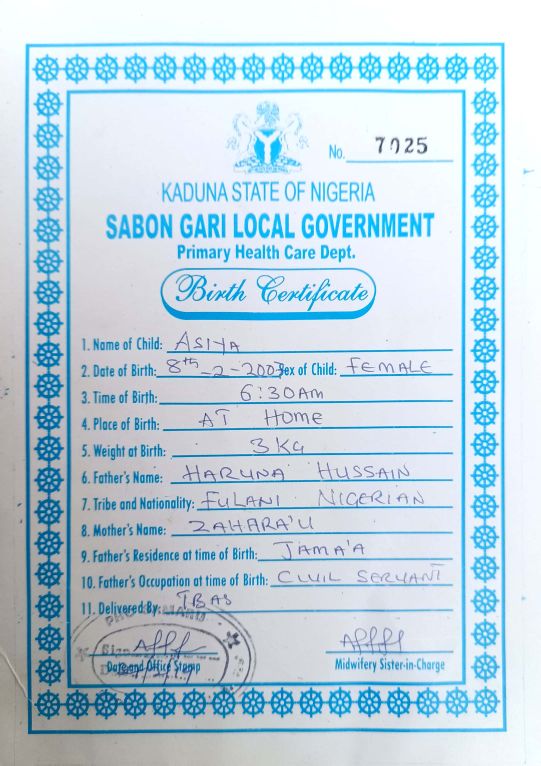 No. 7025
KADUNA STATE OF NIGERIA
SABON GARI LOCAL GOVERNMENT
Primary Health Care Dept.
Birth Certificate
1. Name of Child: ASIYA
2. Date of Birth: 8th-2-2007 Sex of Child: FEMALE
3. Time of Birth: 6:30AM
4. Place of Birth: AT HOME
5. Weight at Birth: 3KG
6. Father's Name: HARUNA HUSSAIN
7. Tribe and Nationality: FULANI NIGERIAN
8. Mother's Name: ZAHARA'U
9. Father's Residence at time of Birth: JAMA'A
10. Father's Occupation at time of Birth: CIVIL SERVANT
11. Delivered By: TBAS
Date and Office Stamp Midwifery Sister-in-Charge